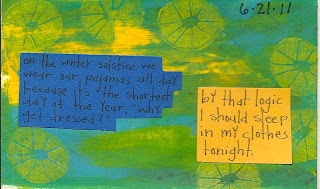 6.21.11
on the winter solstice we
wear our pajamas all day
because it's "the shortest
day of the year, "why
get dressed?"
by that logic
I should sleep
in my clothes
tonight.